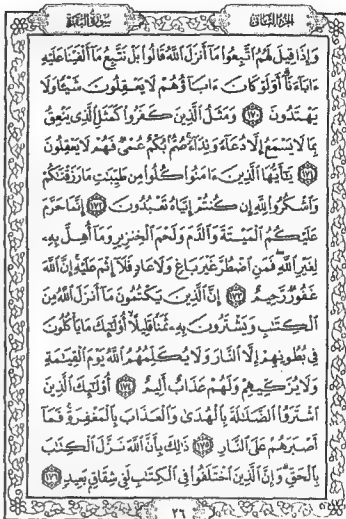 سورة البقرة الجزء الثاني
وَإِذَا قِيلَ لَهُمُ ٱتَّبِعُوا۟ مَآ أَنزَلَ ٱللَّهُ قَالُوا۟ بَلْ نَتَّبِعُ مَآ أَلْفَيْنَا عَلَيْهِ
ءَابَآءَنَآ أَوَلَوْ كَانَ ءَابَآؤُهُمْ لَا يَعْقِلُونَ شَيْـًٔا وَلَا
يَهْتَدُونَ ١٧٠ وَمَثَلُ ٱلَّذِينَ كَفَرُوا۟ كَمَثَلِ ٱلَّذِى يَنْعِقُ
بِمَا لَا يَسْمَعُ إِلَّا دُعَآءً وَنِدَآءً صُمٌّۢ بُكْمٌ عُمْىٌ فَهُمْ لَا يَعْقِلُونَ
١٧١ يَـٰٓأَيُّهَا ٱلَّذِينَ ءَامَنُوا۟ كُلُوا۟ مِن طَيِّبَـٰتِ مَا رَزَقْنَـٰكُمْ
وَٱشْكُرُوا۟ لِلَّهِ إِن كُنتُمْ إِيَّاهُ تَعْبُدُونَ ١٧٢ إِنَّمَا حَرَّمَ
عَلَيْكُمُ ٱلْمَيْتَةَ وَٱلدَّمَ وَلَحْمَ ٱلْخِنزِيرِ وَمَآ أُهِلَّ بِهِۦ
لِغَيْرِ ٱللَّهِ فَمَنِ ٱضْطُرَّ غَيْرَ بَاغٍ وَلَا عَادٍ فَلَآ إِثْمَ عَلَيْهِ إِنَّ ٱللَّهَ
غَفُورٌ رَّحِيمٌ ١٧٣ إِنَّ ٱلَّذِينَ يَكْتُمُونَ مَآ أَنزَلَ ٱللَّهُ مِنَ
ٱلْكِتَـٰبِ وَيَشْتَرُونَ بِهِۦ ثَمَنًا قَلِيلًا أُو۟لَـٰٓئِكَ مَا يَأْكُلُونَ
فِى بُطُونِهِمْ إِلَّا ٱلنَّارَ وَلَا يُكَلِّمُهُمُ ٱللَّهُ يَوْمَ ٱلْقِيَـٰمَةِ
وَلَا يُزَكِّيهِمْ وَلَهُمْ عَذَابٌ أَلِيمٌ ١٧٤ أُو۟لَـٰٓئِكَ ٱلَّذِينَ
ٱشْتَرَوُا۟ ٱلضَّلَـٰلَةَ بِٱلْهُدَىٰ وَٱلْعَذَابَ بِٱلْمَغْفِرَةِ فَمَآ
أَصْبَرَهُمْ عَلَى ٱلنَّارِ ١٧٥ ذَٰلِكَ بِأَنَّ ٱللَّهَ نَزَّلَ ٱلْكِتَـٰبَ
بِٱلْحَقِّ وَإِنَّ ٱلَّذِينَ ٱخْتَلَفُوا۟ فِى ٱلْكِتَـٰبِ لَفِى شِقَاقٍۭ بَعِيدٍ ١٧٦
٢٦